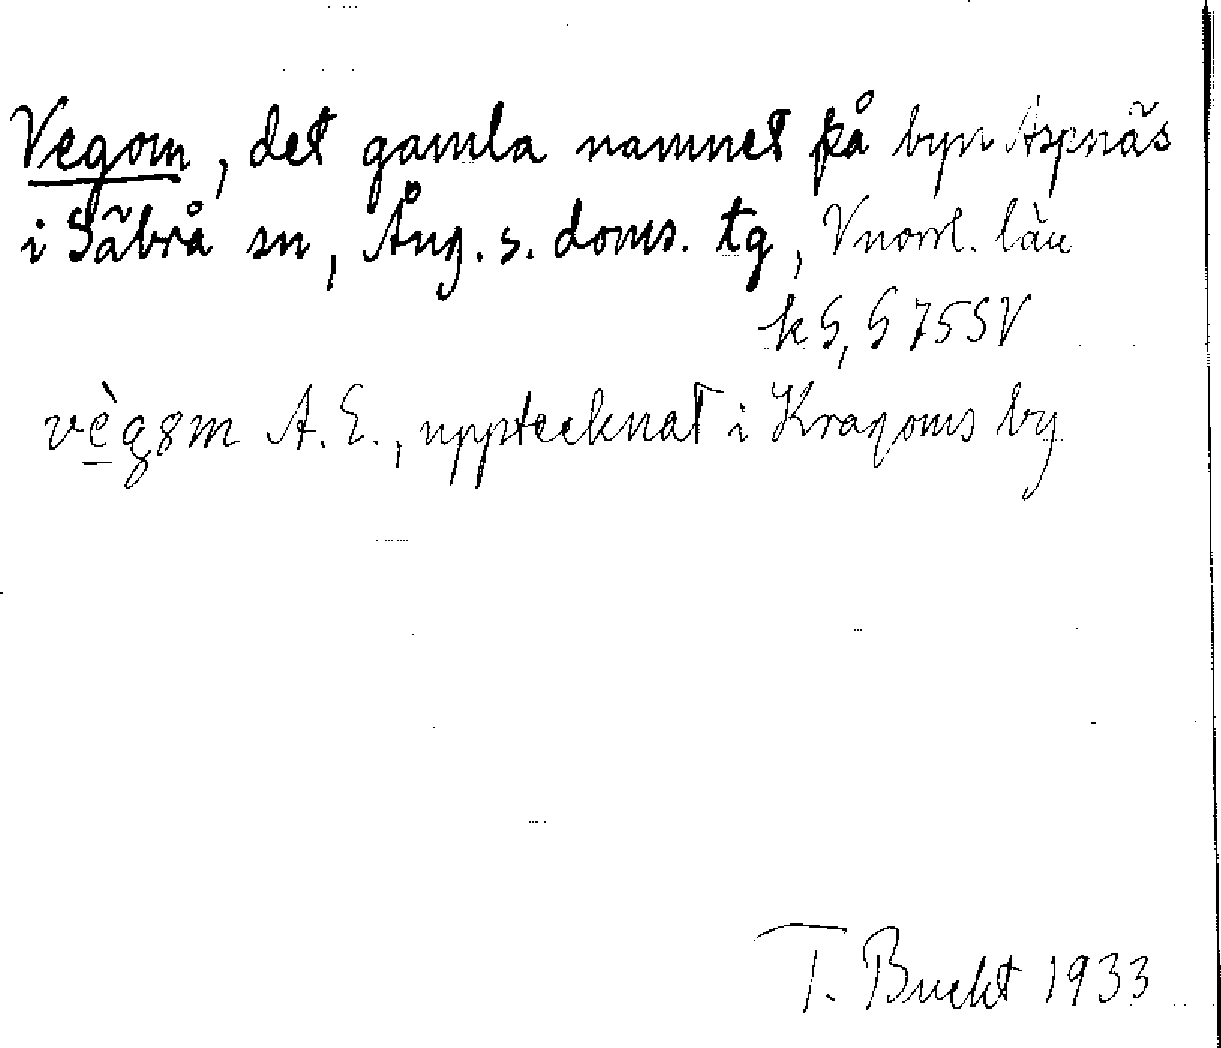 Vegom, det gamla namnet på byn Aspnäs
i Säbrå sn, Ång. s. doms. tg, Vnorrl. län
k S, S 75 SV
vègom A. E., upptecknat i Kragoms by
T. Bucht 1933